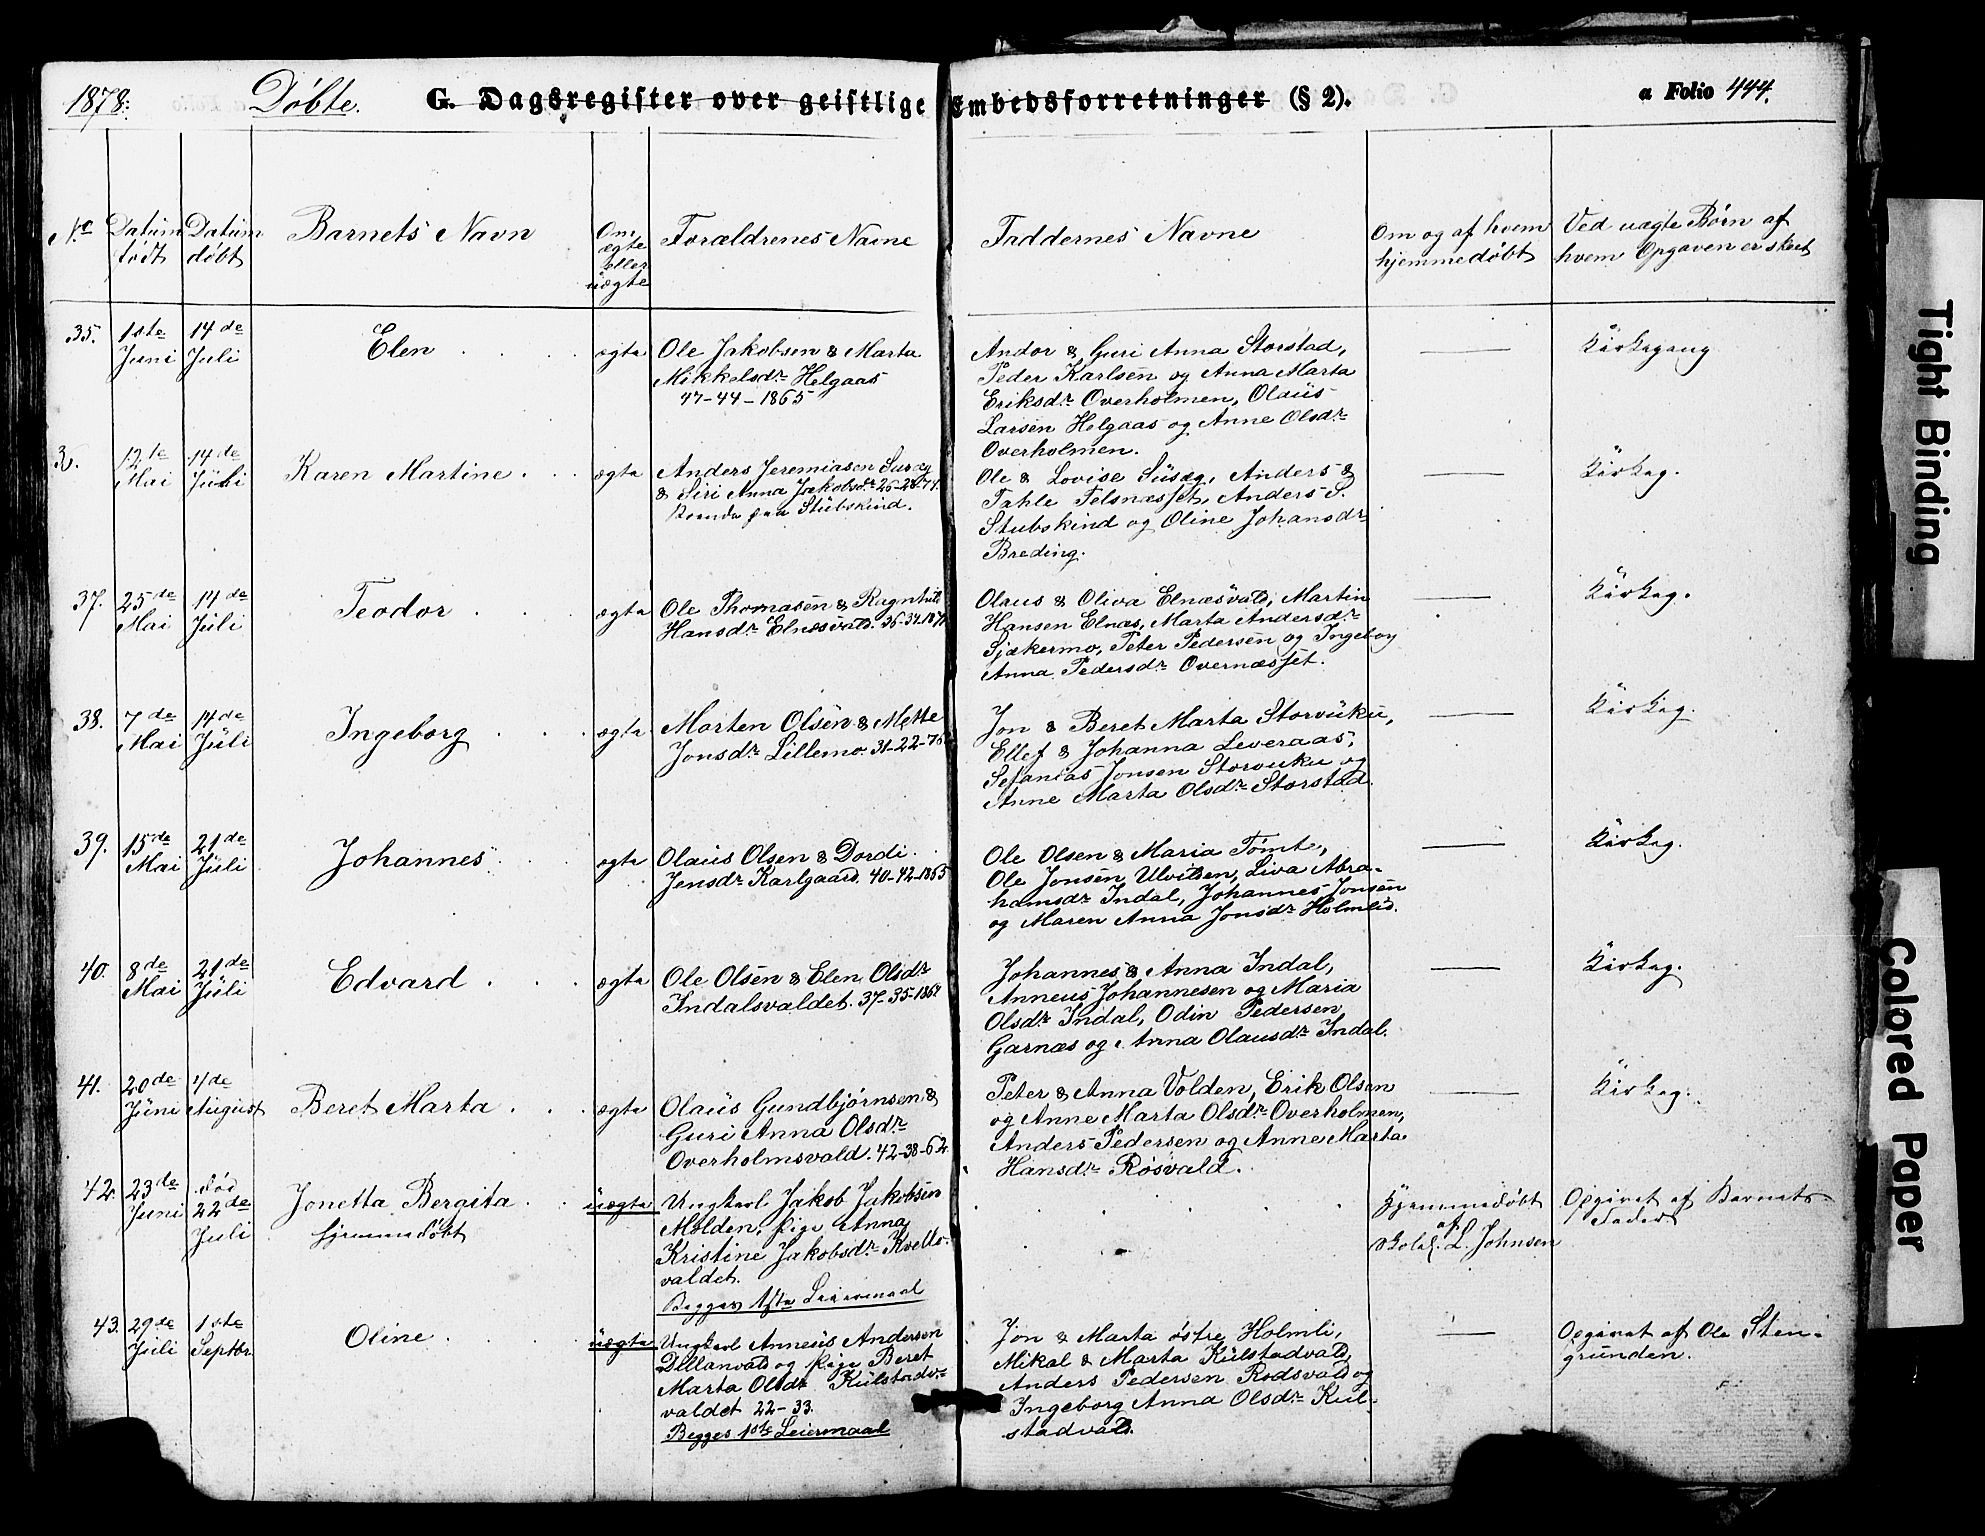 1878. Døbte. G. Dagsregister over geistlige Embedsforretninger (§ 2). a Folio 444.
No Datum født Datum døbt Barnets Navn Om ægte eller uægte Forældrenes Navne Faddernes Navne Om og af hvem hjemmedøbt Ved uægte Børn af hvem Opgaven er skeet
35. 1ste Juni 14de Juli Elen ægte
Ole Jakobsen & Marta
Mikkelsdr. Helgaas
47-44-1865
Andor & Guri Anna Storstad,
Peder Karlsen og Anna Marta
Eriksdr. Overholmen, Olaüs
Larsen Helgaas og Anne Olsdr.
Overholmen.
Kirkegang
12te Mai 14de Jüli Karen Martine ægte
Anders Jeremiasen
& Siri Anna Jakobsdr.
Boende paa Stübskind.
Ole & Lovise Süsæg, Anders &
Tahle Felsnæsset, Anders S.
Stubskind og Oline Johansdr.
Breding.
Kirkeg.
37. 25de Mai 14de Jüli Teodor ægte
Ole Thomasen & Ragnhild
Hansdr. Elnæsvald.
Olaus & Oliva Elnæsvald, Martin
Hansen Elnæs, Marta Andersdr.
Sjækermo, Peter Pedersen og Ingeborg
Anna Pedersdr. Overnæsset.
Kirkeg.
38. 7de Mai 14de Jüli Ingeborg ægte
Morten Olsen & Mette
Jonsdr. Lillemo 31-22-76
Jon & Beret Marta Storvüku,
Ellef & Johanna Leveraas,
Sefanias Jonsen Storvuku og
Anne Marta Olsdr. Storstad.
Kirkeg.
39. 15de Mai 21de Jüli Johannes ægte
Olaüs Olsen & Dordi
Jensdr. Karlgaard. 40-42-1865
Ole Olsen & Maria Tømte,
Ole Jonsen Ulvilsen, Liva Abra-
hamsdr. Indal, Johannes Jonsen
og Maren Anna Jonsdr. Holmlid.
Kirkeg.
40. 8de Mai 21de Jüli Edvard ægte
Ole Olsen & Elen Olsdr.
Indalsvaldet. 37-35-
Johannes & Anna Indal,
Anneus Johannesen og Maria
Olsdr. Indal, Odin Pedersen
Garnæs og Anna Olausdr. Indal.
Kirkeg.
41. 20de Jüni 4de August Beret Marta ægte
Olaüs Gundbjørnsen &
Guri Anna Olsdr.
Overholmsvald. 42-38-62
Peter & Anna Volden, Erik Olsen
og Anne Marta Olsdr. Overholmen,
Anders Pedersen og Anne Marta
Hansdr. Røsvald.
Kirkeg.
42. 23de Juni død 22de Juli Jonetta Bergita uægte
hjemmedøbt
Ungkarl Jakob Jakobsen
Molden, pige Anna
Kristine Jakobsdr. Kvello-
valdet.
Begges 1ste Leiermaal
Hjemmedøbt
af
L. Johnsen
Opgivet af Barnets
Fader
43. 29de Jüli 1ste Septbr. Oline uægte
Ungkarl Anneüs Andersen
og pige Beret
Marta Olsdr. Külstadv.
valdet 22-33.
Begges 1ste Leiermaal
Jon & Marta østre Holmli,
Mikal & Marta Külstadvald,
Anders Pedersen Rodsvald og
Ingeborg Anna Olsdr. Kul-
stadvald.
Opgivet af Ole Sten-
grunden.
Tight Binding
Colored Paper